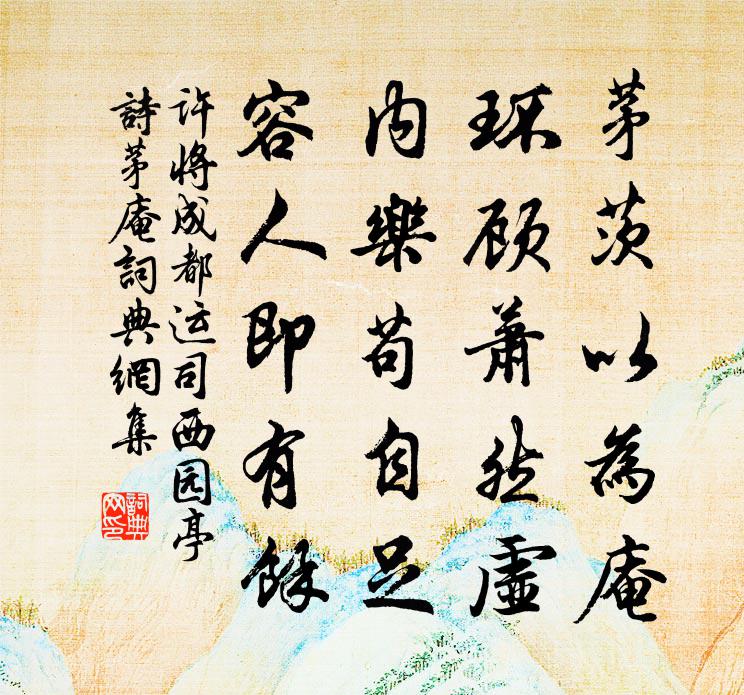 茅茨以為庵
環顧蕭然虛
内樂苟自足
容人即有餘
许將成都运司西园亭
詩茅庵詞典網集
詞典网印